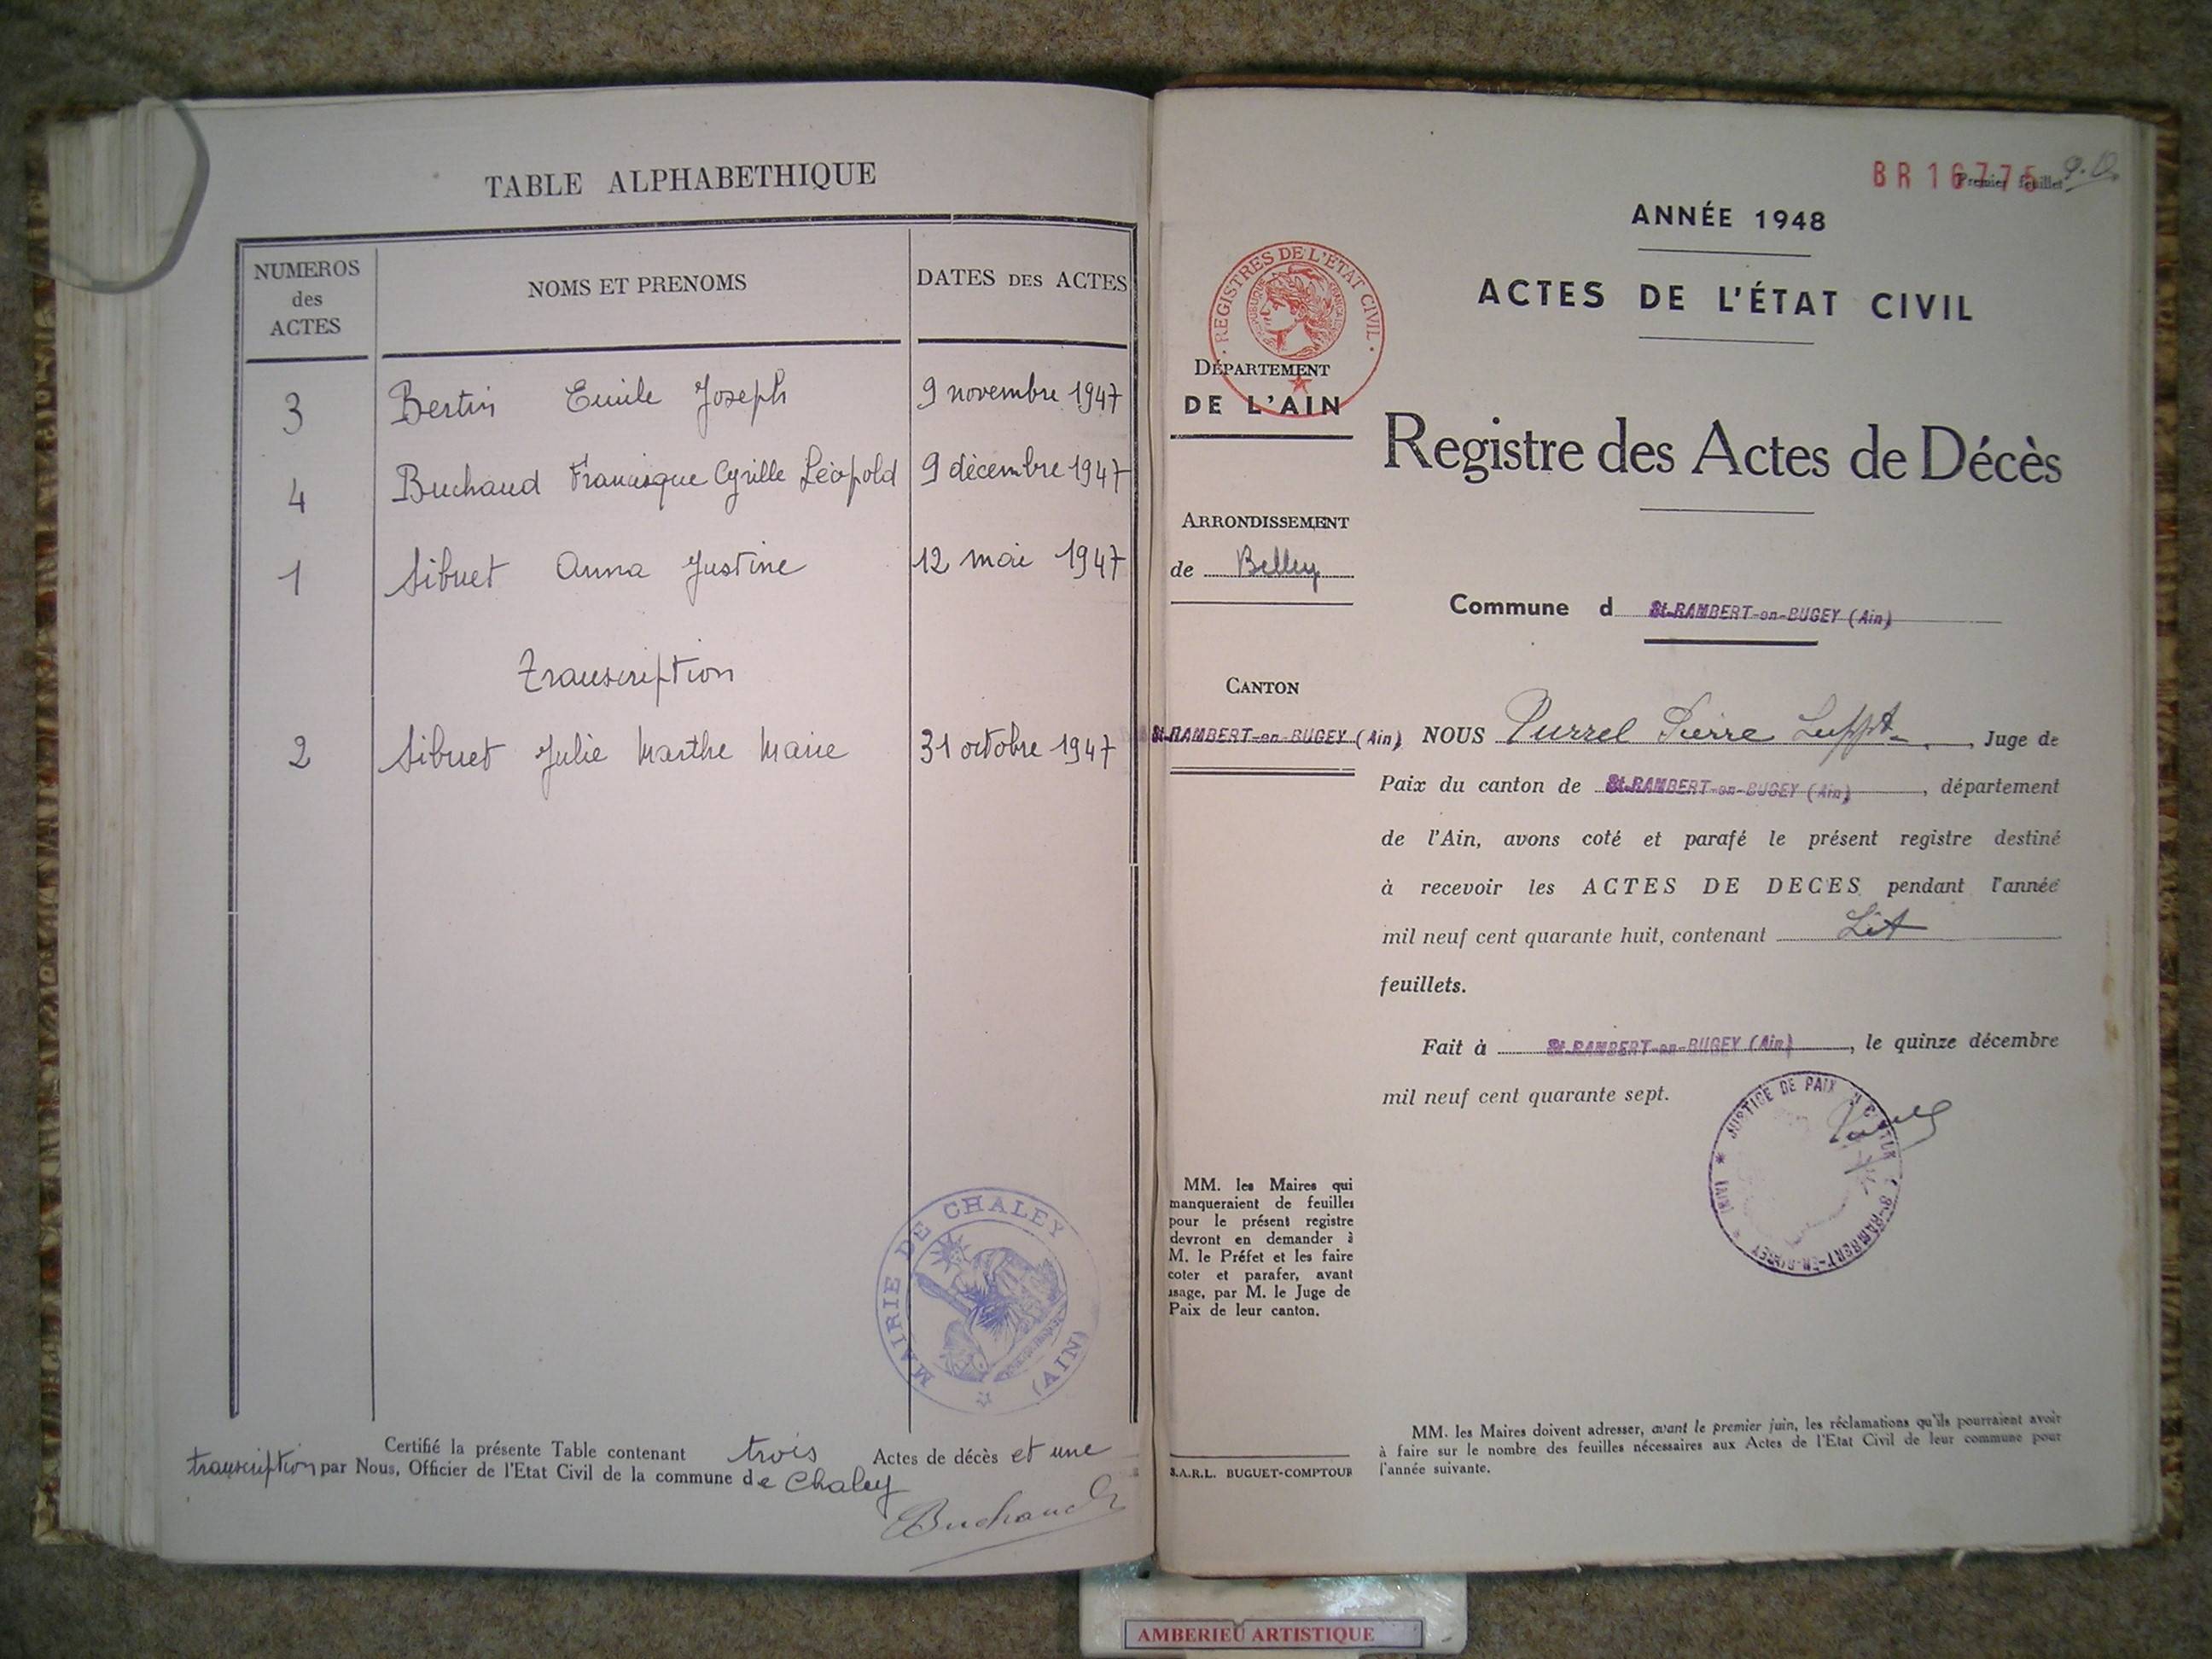 TABLE ALPHABETHIQUE
NUMEROS
des
ACTES
NOMS ET PRENOMS
DATES DES ACTES
3 Bertin Emile Joseph 9 novembre 1947
4 Buchaud Francisque Cyrille Léopold 9 décembre 1947
1 Sibuet Anna Justine 12 mai 1947
Transcription
2 Sibuet Julie Marthe Marie 31 octobre 1947
MAIRIE DE CHALEY
(AIN)
Certifié la présente Table contenant trois Actes de décès et une
transcription par Nous, Officier de l'Etat Civil de la commune de Chaley
Buchaud
BR 16775
Premier feuillet
ANNÉE 1948
ACTES DE L'ÉTAT CIVIL
REGISTRES DE L'ETAT CIVIL
DÉPARTEMENT
DE L'AIN
Registre des Actes de Décès
ARRONDISSEMENT
de Belley
Commune d St-RAMBERT-en-BUGEY (Ain)
CANTON
St-RAMBERT-en-BUGEY (Ain)
NOUS Pierre Juge de
Paix du canton de St-RAMBERT-en-BUGEY (Ain), département
de l'Ain, avons coté et parafé le présent registre destiné
à recevoir les ACTES DE DECES pendant l'année
mil neuf cent quarante huit, contenant
feuillets.
Fait à St-RAMBERT-en-BUGEY (Ain), le quinze décembre
mil neuf cent quarante sept.
JUSTICE DE PAIX
St-RAMBERT-EN-BUGEY
(AIN)
MM. les Maires qui
manqueraient de feuilles
pour le présent registre
devront en demander à
M. le Préfet et les faire
coter et parafer, avant
usage, par M. le Juge de
Paix de leur canton.
S.A.R.L. BUGUET-COMPTOUR
MM. les Maires doivent adresser, avant le premier juin, les réclamations qu'ils pourraient avoir
à faire sur le nombre des feuilles nécessaires aux Actes de l'Etat Civil de leur commune pour
l'année suivante.
AMBERIEU ARTISTIQUE